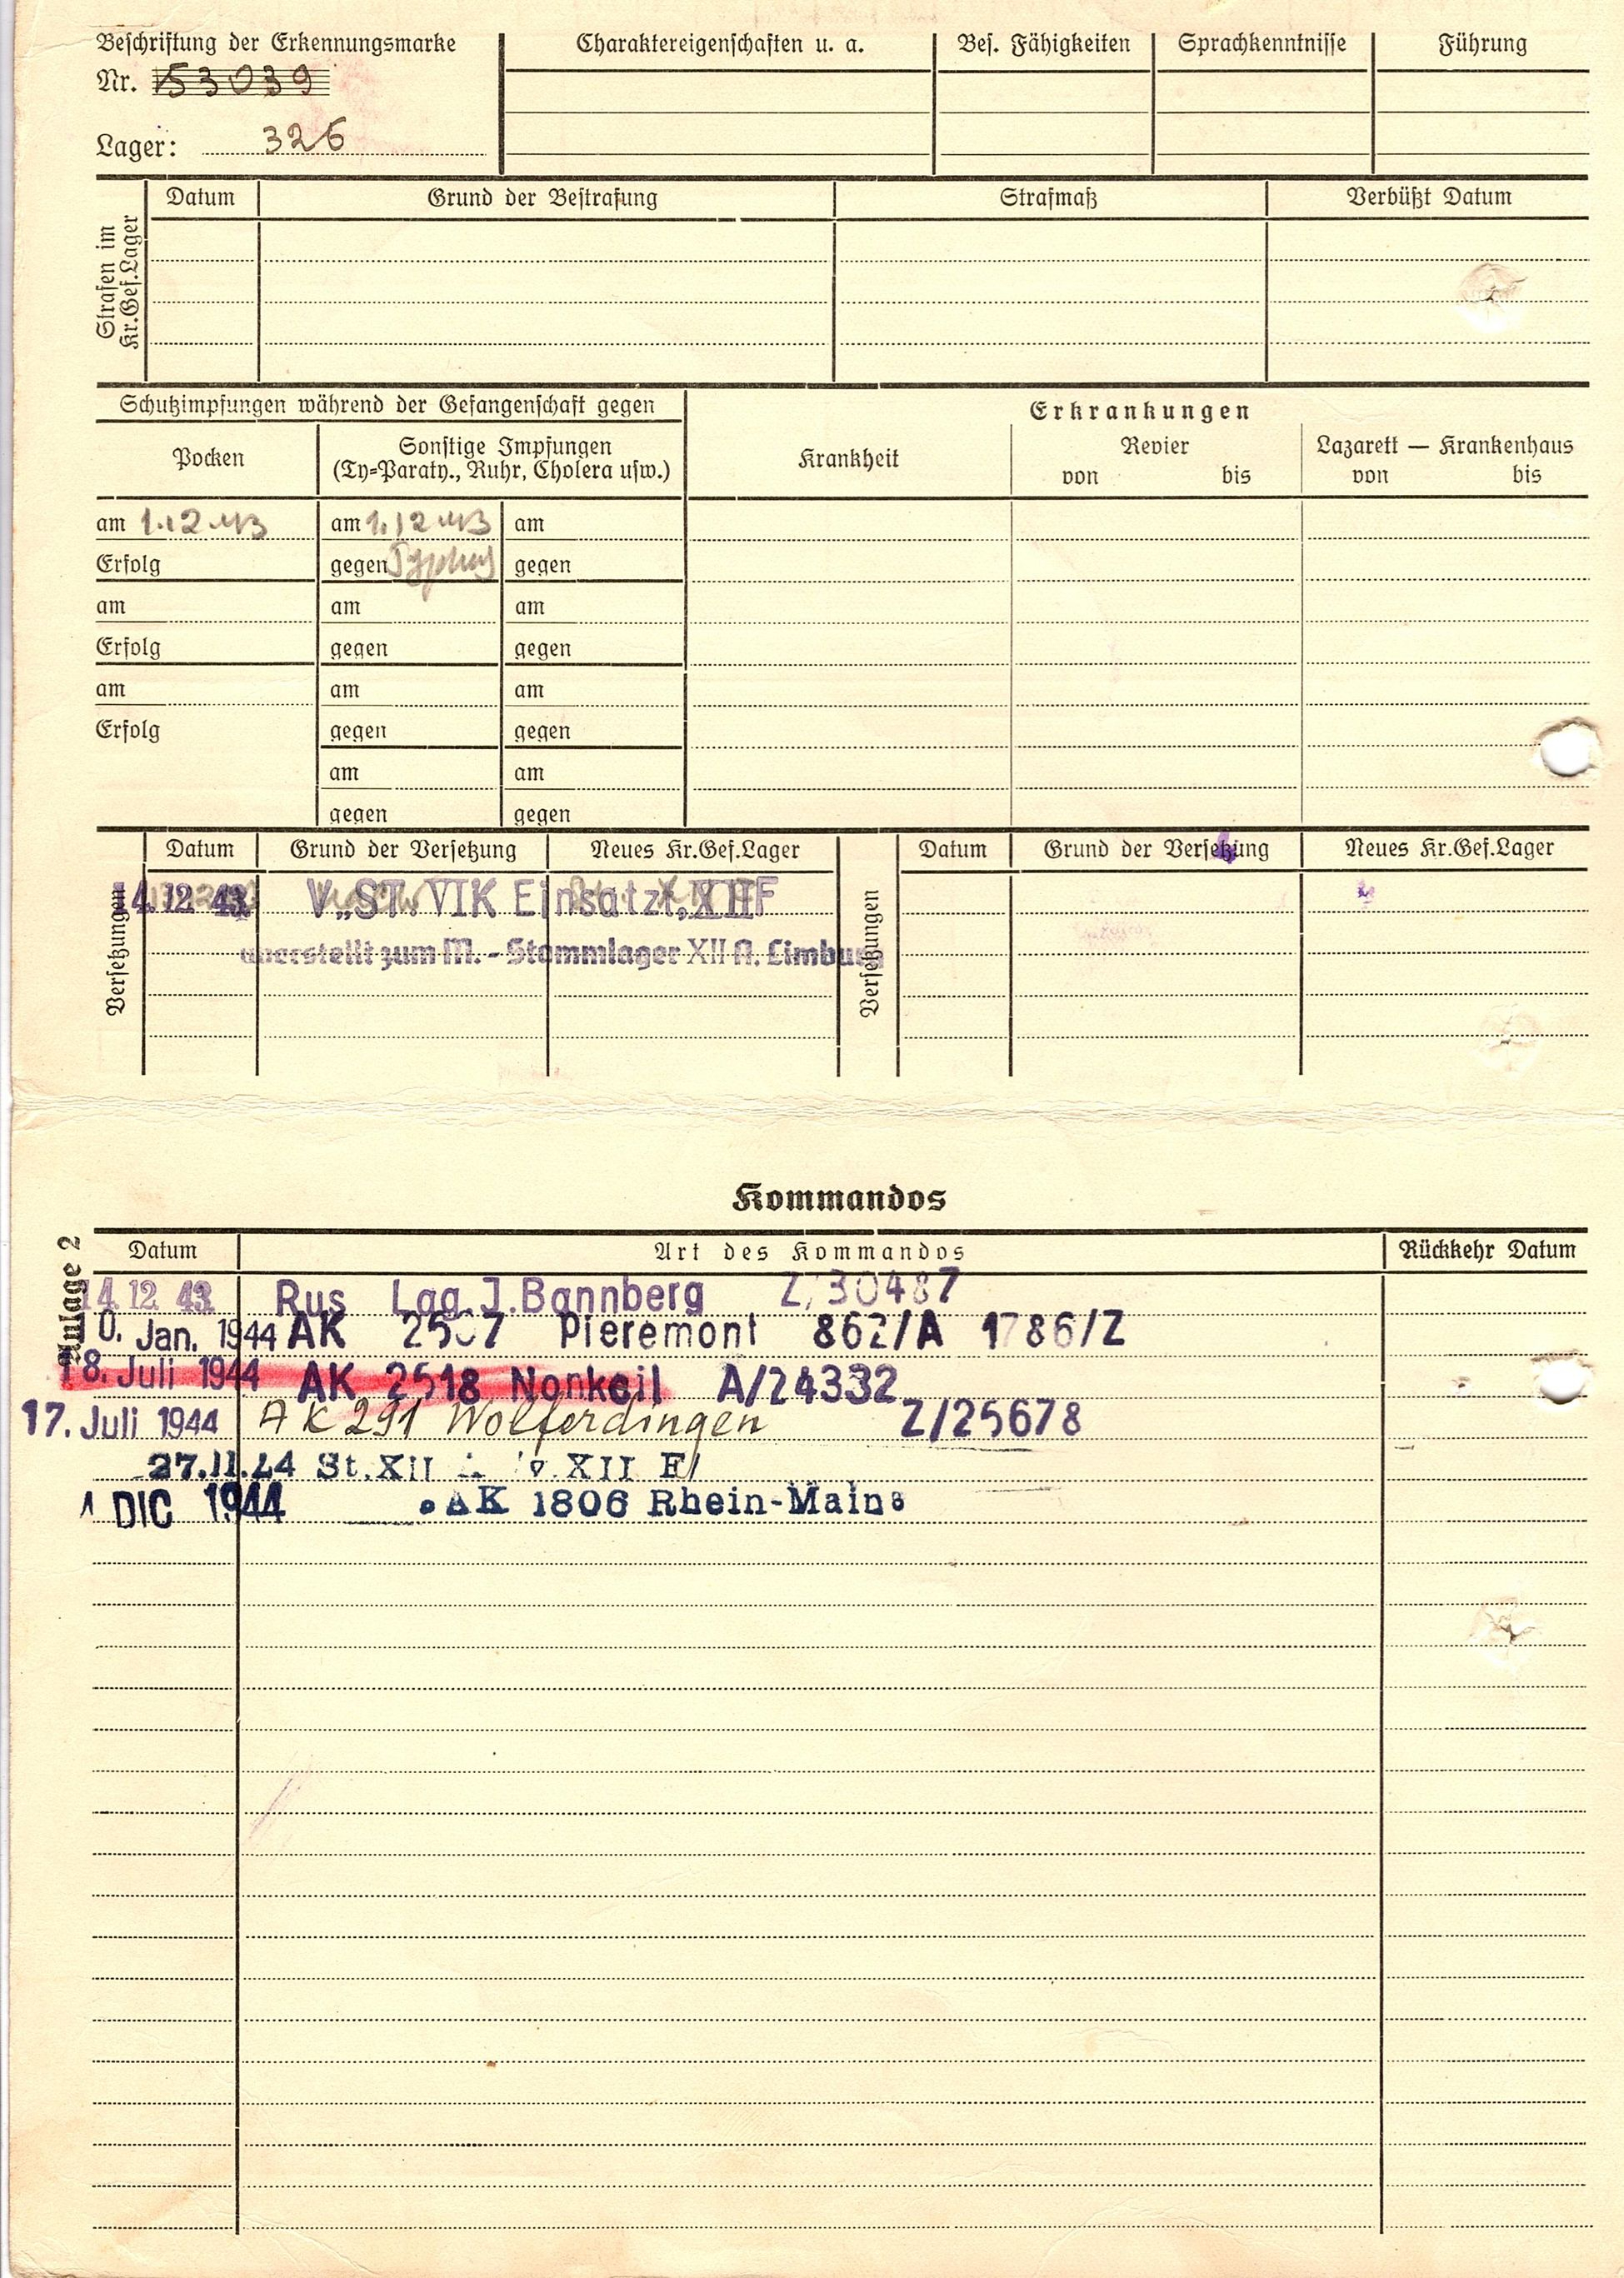 Beschriftung der Erkennungsmarke
Nr. 153039
Lager: 326
Charaktereigenschaften u. a.
Bes. Fähigkeiten
Sprachkenntnisse
Führung
Strafen im
Kr.Gef.Lager
Datum
Grund der Bestrafung
Strafmaß
Verbüßt Datum
Schutzimpfungen während der Gefangenschaft gegen
Pocken
Sonstige Impfungen
(Ty=Paraty., Ruhr, Cholera usw.)
Erkrankungen
Krankheit
Revier
von bis
Lazarett — Krankenhaus
von bis
am 1.12.43 am 1.12.43 am
Erfolg gegen Typhus gegen
am am am
Erfolg gegen gegen
am am am
Erfolg gegen gegen
am am
gegen gegen
Versetzungen
Datum Grund der Versetzung Neues Kr.Gef.Lager
Versetzungen
Datum Grund der Versetzung Neues Kr.Gef.Lager
14.12 43 V. ST. VIK Einsatzt. XIIF
überstellt zum M. - Stammlager XII A. Limburg
Kommandos
Anlage 2
Datum Art des Kommandos Rückkehr Datum
14.12 43 Rus Lag.J.Bannberg Z/30487
10. Jan. 1944 AK Pieremont 862/A 1786/Z
18. Juli 1944 AK 2518 Nonkeil A/24332
17. Juli 1944 AK 291 Wolferdingen Z/25678
27.11.44 St.XII XII F/
1 DIC 1944 AK 1806 Rhein-Main